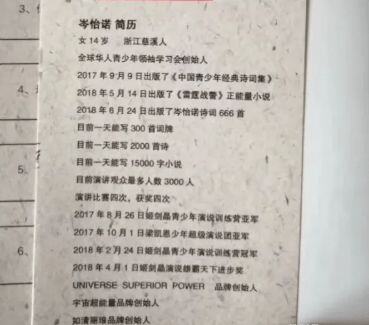 岑怡诺 简历
女 14 岁 浙江慈溪人
全球华人青少年领袖学习会创始人
2017 年 9 月 9 日出版了《中国青少年经典诗词集》
2018 年 5 月 14 日出版了《雷霆战警》正能量小说
2018 年 6 月 24 日出版了岑怡诺诗词 666 首
目前一天能写 300 首词牌
目前一天能写 2000 首诗
目前一天能写 15000 字小说
目前演讲观众最多人数 3000 人
演讲比赛四次，获奖四次
2017 年 8 月 26 日姬剑晶青少年演说训练营亚军
2017 年 10 月 1 日梁凯恩少年超级演说团亚军
2018 年 2 月 24 日姬剑晶青少年演说训练营冠军
2018 年 4 月 1 日姬剑晶演说雄霸天下进步奖
UNIVERSE SUPERIOR POWER 品牌创始人
宇宙超能量品牌创始人
如清丽琅品牌创始人